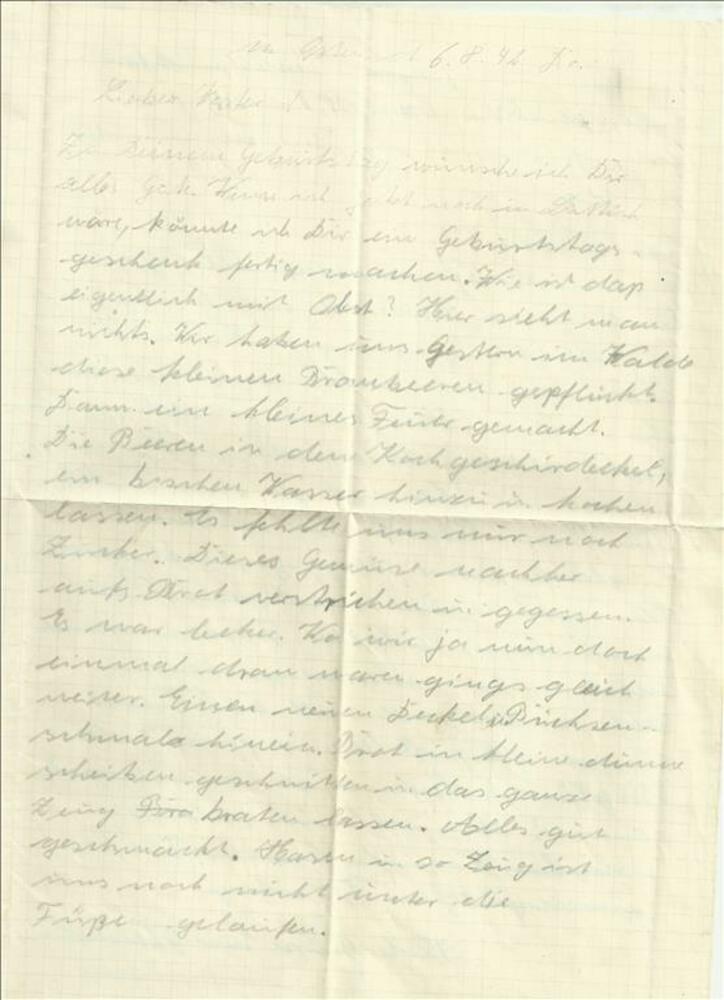 im Osten, d 6.8.42. Do.
Lieber Vater!
Zu Deinem Geburtstag wünsche ich Dir
alles Gute. Wenn ich jetzt noch in
wäre, könnte ich Dir ein Geburtstags-
geschenk fertig machen. Wie ist daß
eigentlich mit Obst? Hier sieht man
nichts. Wir haben uns Gestern im Walde
diese kleinen Brombeeren gepflückt.
Dann ein kleines Feuer gemacht.
Die Beeren in den Kochgeschirdeckel,
ein bischen Wasser hinzu u. kochen
lassen. Es fehlte uns nur noch
Zucker. Dieses Gemüse nachher
aufs Brot verstrichen u. gegessen.
Es war lecker. Wo wir ja nun doch
einmal dran waren gings gleich
weiter. Einen neuen Deckel, Büchsen-
schmalz hinein. Brot in kleine dünne
scheiben geschnitten u. das ganze
Zeug braten lassen. Alles gut
geschmeckt. Hasen u. so Zeug ist
uns noch nicht unter die
Füße gelaufen.